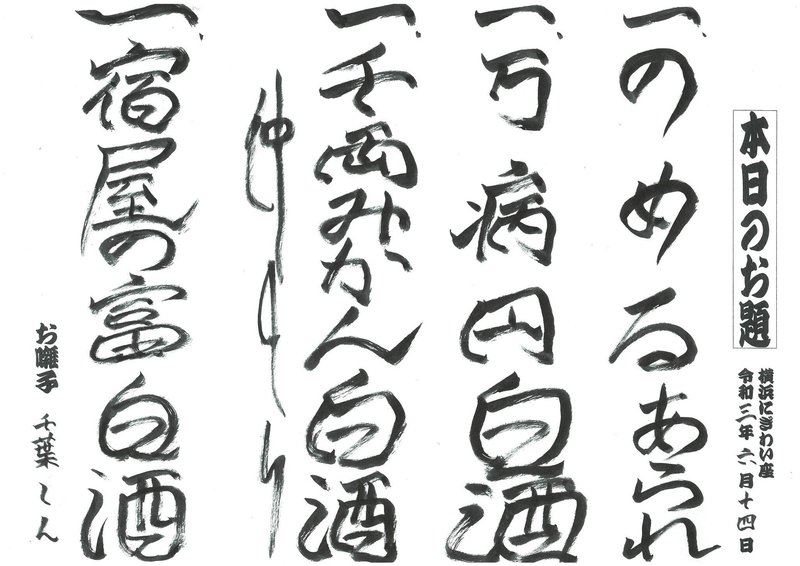 本日のお題
横浜にぎわい座
令和三年六月十四日
一、のめる あられ
一、万病円 白酒
一、千両みかん 白酒
仲入り
一、宿屋の富 白酒
お囃子 千葉しん